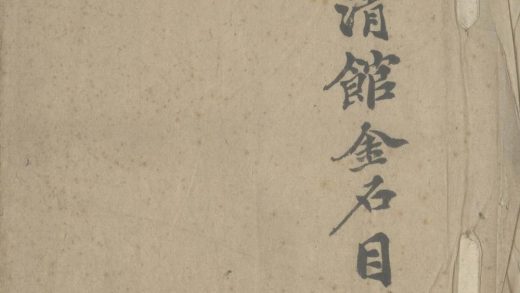 清館金石目